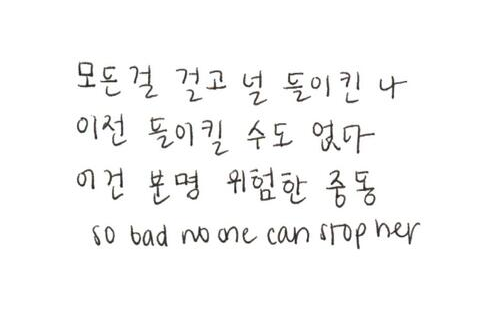 모든걸 걸고 널 들이킨 나
이전 들이킬 수도 없다
이건 분명 위험한 중동
so bad no one can stop her